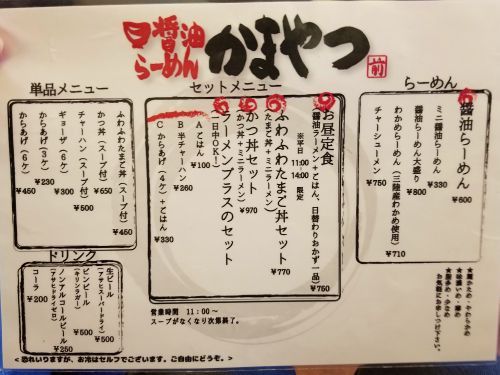 醤油
らーめん
かまやつ
らーめん
醤油らーめん ¥600
ミニ醤油らーめん ¥330
醤油らーめん大盛り ¥800
わかめらーめん(三陸産わかめ使用) ¥710
チャーシューメン ¥750
セットメニュー
お昼定食
醤油ラーメン+ごはん、日替わりおかず一品) ¥750
※平日 11:00~14:00 限定
ふわふわたまご丼セット
たまご丼+ミニラーメン) ¥770
かつ丼セット
かつ丼+ミニラーメン) ¥970
ラーメンプラスのセット
一日中OK!)
Aごはん ¥100
B半チャーハン ¥260
Cからあげ(4ケ)+ごはん ¥330
営業時間 11:00~
スープがなくなり次第終了。
単品メニュー
ふわふわたまご丼(スープ付) ¥450
かつ丼(スープ付) ¥650
チャーハン(スープ付) ¥500
ギョーザ(6ケ) ¥300
からあげ(3ケ) ¥230
からあげ(6ケ) ¥450
ドリンク
生ビール
(アサヒスーパードライ) ¥500
ビンビール
(キリンラガー) ¥500
ノンアルコールビール
(アサヒドライゼロ) ¥250
コーラ ¥200
★麺かため・やわらかめ
お気軽にお申しつけ下さい。
<恐れいりますが、お冷はセルフでございます。ご自由にどうぞ。>